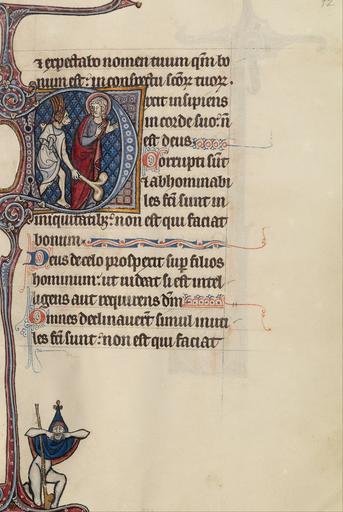 ⁊ expectabo nomen tuum qm̄ bo
num est: in conspectu scōr tuor.
Dixit insipiens
in corde suo: n̄
est deus.
Corrupti sūt
⁊ abhominabi
les fc̄i sunt in
iniquitatib; non est qui faciat
bonum
Deus de celo prospexit sup filios
hominum: ut uideat si est intel
ligens aut requirens dm̄
Omnes declinauert̄ simul inuti
les fc̄i sunt: non est qui faciat